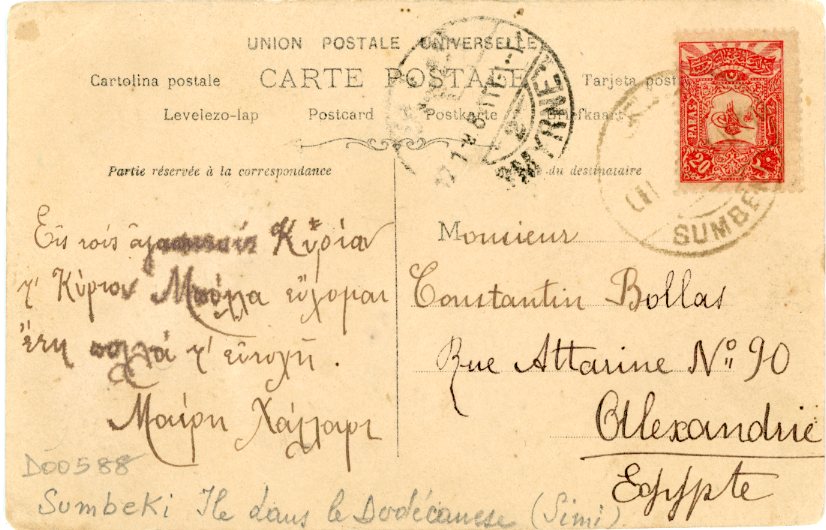 UNION POSTALE UNIVERSELLE
Cartolina postale CARTE POSTALE Tarjeta post
Levelezo-lap Postcard Postkarte Briefkaart
Partie réservée à la correspondance
du destinataire
SMYRNE
20 PARAS
SUMBE
Εἰς τοὺς ἀγαπητοὺς Κυρίαν
κ' Κύριον Μπόλλα εὔχομαι
ἔτη πολλά κ' εὐτυχῆ.
Μαίρη
Monsieur
Constantin Bollas
Rue Attarine Nº 90
Alexandrie
Egypte
D00588
Sumbeki Ile dans le Dodécanese (Simi)